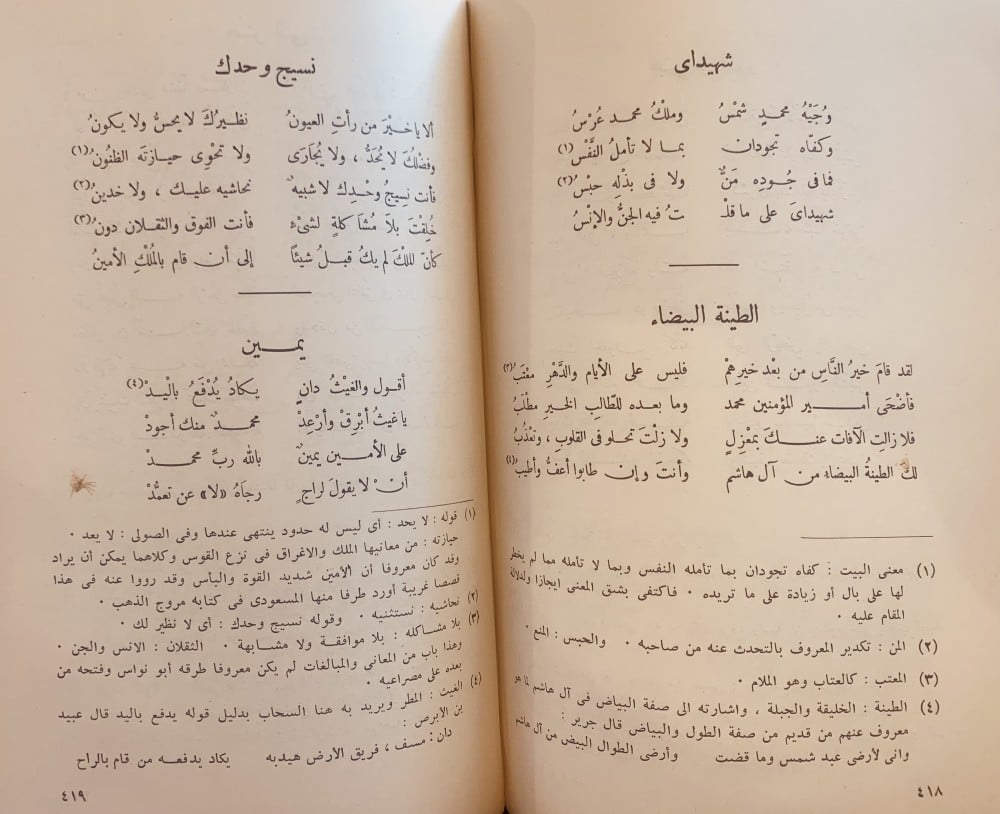 شهيداى
وُجَيْهُ محمدٍ شمْسُ وملْكُ محمد عُرْسُ
وكفّاه تجودان بما لا تأملُ النَّفْسُ (١)
فما فى جُودِه مَنٌّ ولا فى بذلِه حبْسُ (٢)
شهيداىَ على ما قلـْ ـتُ فيه الجنُّ والإنْسُ
الطينة البيضاء
لقد قامَ خيرُ النَّاسِ من بعْد خيرِهمْ فليس على الأيام والدَّهْرِ معْتَبُ (٣)
فأضْحَى أمير المؤمنين محمد وما بعده للطَّالبِ الخيرِ مطْلَبُ
فلا زالتِ الآفات عنك بمعْزِلٍ ولا زلْتَ تحلو فى القلوبِ ، وتعْذُبُ
لكَ الطينةُ البيضاء من آل هاشم وأنتَ وإن طابوا أعفُّ وأطيبُ (٤)
(١) معنى البيت : كفاه تجودان بما تأمله النفس وبما لا تأمله مما لم يخطر
لها على بال أو زيادة على ما تريده . فاكتفى بشق المعنى ايجازا ولدلالة
المقام عليه .
(٢) المن : تكدير المعروف بالتحدث عنه من صاحبه . والحبس : المنع .
(٣) المعتب : كالعتاب وهو الملام .
(٤) الطينة : الخليقة والجبلة ، واشارته الى صفة البياض فى آل هاشم لما هو
معروف عنهم من قديم من صفة الطول والبياض قال جرير :
وانى لأرضى عبد شمس وما قضت وأرضى الطوال البيض من آل هاشم
٤١٨
نسيج وحدك
ألا ياخيرَ من رأتِ العيونُ نظيرُكَ لا يحسُّ ولا يكونُ
وفضْلُكَ لا يُحَدُّ ، ولا يُجارَى ولا تحْوِى حيازتَه الظنُونُ (١)
فأنت نسِيجُ وحْدِك لا شبيهٌ نحاشيه عليك ، ولا خدينُ (٢)
خُلِقتَ بلاَ مُشاكلةٍ لشىْءٍ فأنت الفوق والثقلان دونُ (٣)
كأنّ الملكَ لم يكُ قبلُ شيئًا إلى أن قام بالمُلْكِ الأمينُ
يمين
أقول والغيْثُ دانٍ يكادُ يُدْفَعُ باليدْ (٤)
ياغيثُ أبْرِقْ وأرْعِدْ محمدٌ منك أجودْ
على الأمين يمينٌ بالله ربِّ محمدْ
أنْ لا يقولَ لراجٍ رجاهُ «لا» عن تعمُّدْ
(١) قوله : لا يحد : أى ليس له حدود ينتهى عندها وفى الصولى : لا يعد .
حيازته : من معانيها الملك والاغراق فى نزع القوس وكلاهما يمكن أن يراد
وقد كان معروفا أن الأمين شديد القوة والبأس وقد رووا عنه فى هذا
قصصا غريبة أورد طرفا منها المسعودى فى كتابه مروج الذهب .
(٢) نحاشيه : نستثنيه . وقوله نسيج وحدك : أى لا نظير لك .
(٣) بلا مشاكله : بلا موافقة ولا مشابهة . الثقلان : الانس والجن .
وهذا باب من المعانى والمبالغات لم يكن معروفا طرقه أبو نواس وفتحه من
بعده على مصراعيه .
(٤) الغيث : المطر ويريد به هنا السحاب بدليل قوله يدفع باليد قال عبيد
بن الابرص :
دان : مسف ، فريق الارض هيدبه يكاد يدفعه من قام بالراح
٤١٩